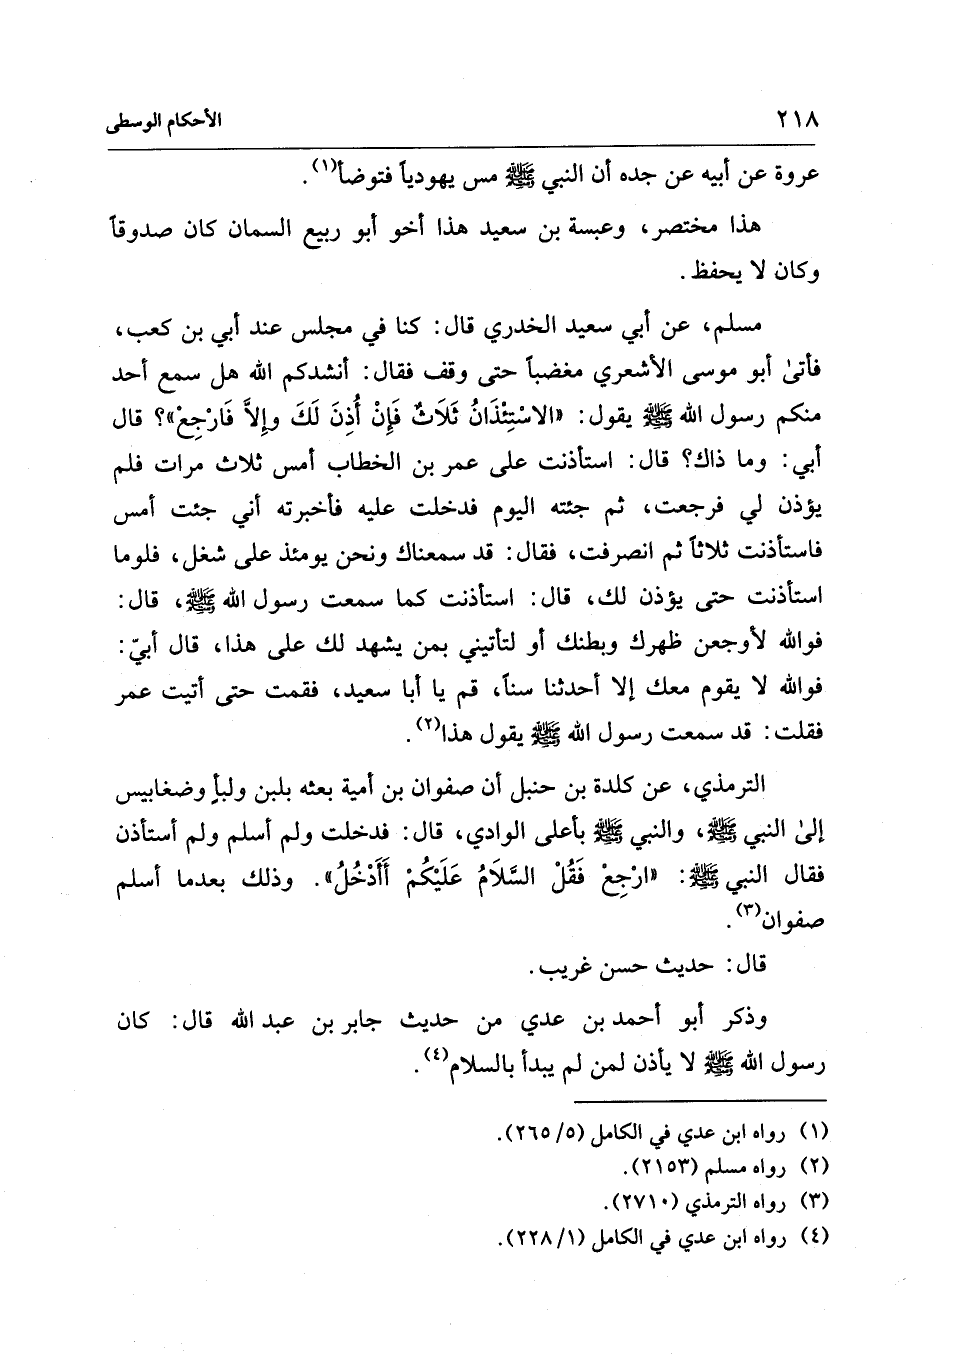 ٢١٨ الأحكام الوسطى
عروة عن أبيه عن جده أن النبي ﷺ مس يهودياً فتوضأ(١).
هذا مختصر، وعبسة بن سعيد هذا أخو أبو ربيع السمان كان صدوقاً
وكان لا يحفظ.
مسلم، عن أبي سعيد الخدري قال: كنا في مجلس عند أبي بن كعب،
فأتىٰ أبو موسى الأشعري مغضباً حتى وقف فقال: أنشدكم الله هل سمع أحد
منكم رسول الله ﷺ يقول: «الاسْتِئْذَانُ ثَلَاثٌ فَإِنْ أُذِنَ لَكَ وإِلاَّ فَارْجِعْ»؟ قال
أبي: وما ذاك؟ قال: استأذنت على عمر بن الخطاب أمس ثلاث مرات فلم
يؤذن لي فرجعت، ثم جئته اليوم فدخلت عليه فأخبرته أني جئت أمس
فاستأذنت ثلاثاً ثم انصرفت، فقال: قد سمعناك ونحن يومئذ على شغل، فلوما
استأذنت حتى يؤذن لك، قال: استأذنت كما سمعت رسول الله ﷺ، قال:
فوالله لأوجعن ظهرك وبطنك أو لتأتيني بمن يشهد لك على هذا، قال أبيّ:
فوالله لا يقوم معك إلا أحدثنا سناً، قم يا أبا سعيد، فقمت حتى أتيت عمر
فقلت: قد سمعت رسول الله ﷺ يقول هذا(٢).
الترمذي، عن كلدة بن حنبل أن صفوان بن أمية بعثه بلبن ولبأ وضغابيس
إلىٰ النبي ﷺ، والنبي ﷺ بأعلى الوادي، قال: فدخلت ولم أسلم ولم أستأذن
فقال النبي ﷺ: «ارْجِعْ فَقُلْ السَّلَامُ عَلَيْكُمْ أَأَدْخُلُ». وذلك بعدما أسلم
صفوان(٣).
قال: حديث حسن غريب.
وذكر أبو أحمد بن عدي من حديث جابر بن عبد الله قال: كان
رسول الله ﷺ لا يأذن لمن لم يبدأ بالسلام(٤).
(١) رواه ابن عدي في الكامل (٥/ ٢٦٥).
(٢) رواه مسلم (٢١٥٣).
(٣) رواه الترمذي (٢٧١٠).
(٤) رواه ابن عدي في الكامل (١/ ٢٢٨).